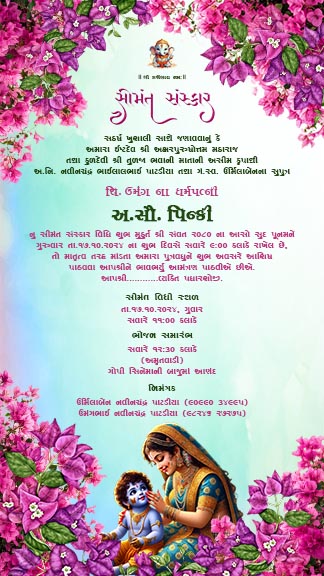 ॥ શ્રી ગણેશાય નમઃ ॥
સીમંત સંસ્કાર
સહર્ષ ખુશાલી સાથે જણાવવાનું કે
અમારા ઈષ્ટદેવ શ્રી અક્ષરપુરુષોત્તમ મહારાજ
તથા કુળદેવી શ્રી તુળજા ભવાની માતાની અસીમ કૃપાથી
અ.નિ. નવીનચંદ્ર ભાઈલાલભાઈ પાટડીયા તથા ગં.સ્વ. ઉર્મિલાબેનના સુપુત્ર
ચિ. ઉમંગ ના ધર્મપત્ની
અ.સૌ. પિન્કી
નુ સીમંત સંસ્કાર વિધિ શુભ મુહુર્ત શ્રી સંવત ૨૦૮૦ ના આસો સુદ પુનમને
ગુરુવાર તા.૧૭.૧૦.૨૦૨૪ ના શુભ દિવસે સવારે ૯:૦૦ કલાકે રાખેલ છે,
તો માતૃત્વ તરફ માંડતા અમારા પુત્રવધુને શુભ અવસરે આશિષ
પાઠવવા આપશ્રીને ભાવભર્યુ આમંત્રણ પાઠવીએ છીએ.
આપશ્રી............વ્યક્તિ પધારશોજી.
સીમંત વિધી સ્થળ
તા.૧૭.૧૦.૨૦૨૪, ગુવાર
સવારે ૧૧:૦૦ કલાકે
ભોજન સમારંભ
સવારે ૧૨:૩૦ કલાકે
(અમૃતવાડી)
ગોપી સિનેમાની બાજુમાં આણંદ
નિમંત્રક
ઉર્મિલાબેન નવીનચંદ્ર પાટડીયા (૯૦૯૯૦ ૩૪૯૯૫)
ઉમંગભાઈ નવીનચંદ્ર પાટડીયા (૯૮૨૪૭ ૨૭૨૭૫)